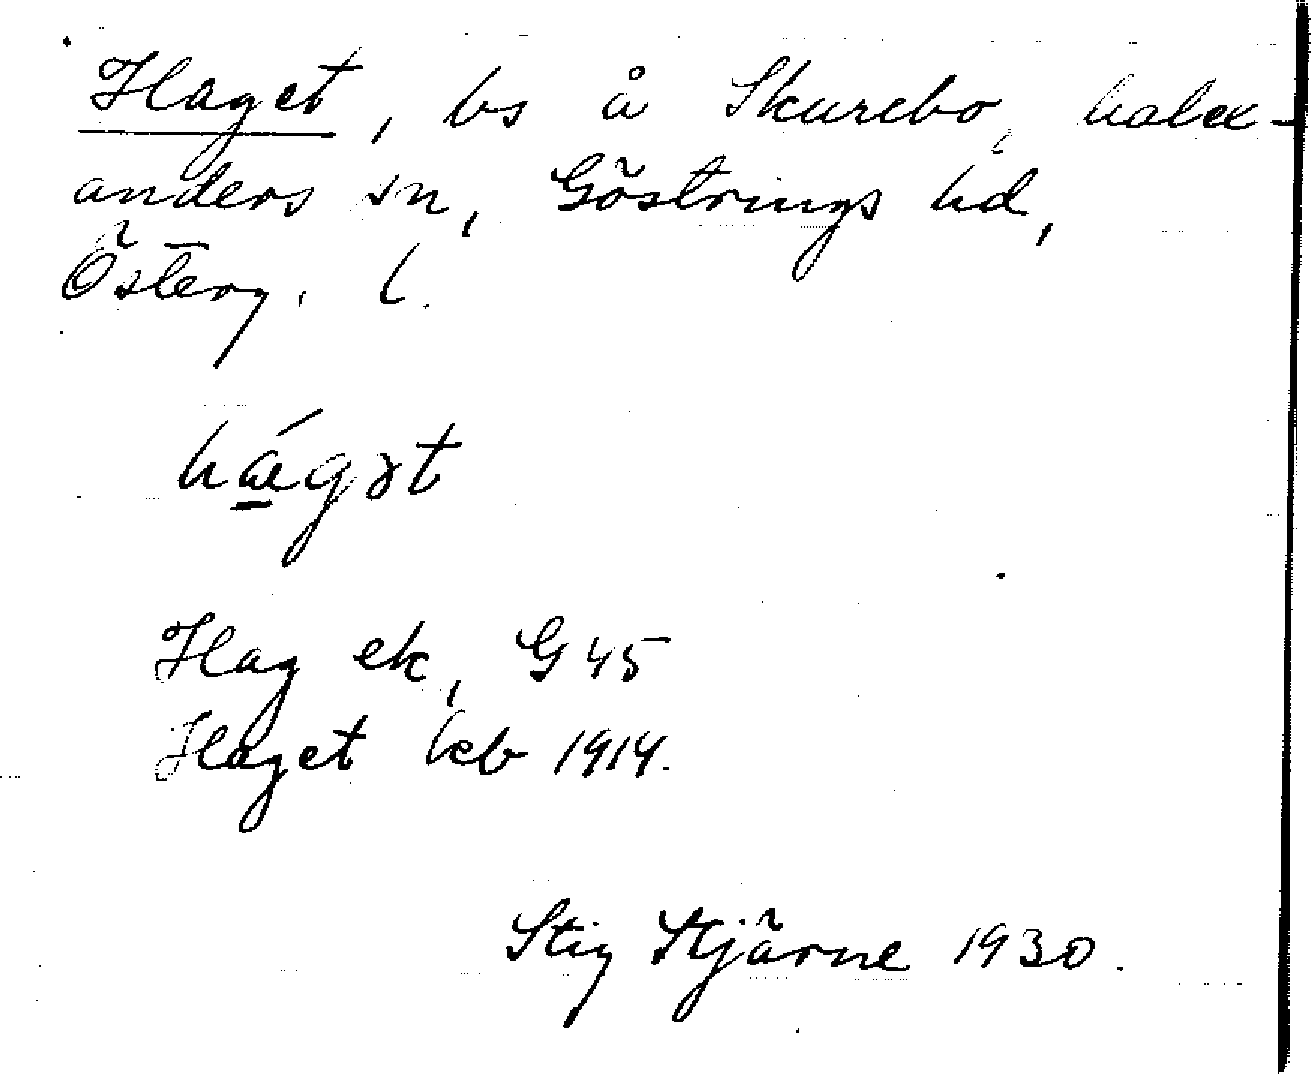 Haget, bs å Skurebo, Kalex-
anders sn, Göstrings hd,
Österg. l.
Hag ek, G 45
Haget keb 1914.
Stig Stjärne 1930.